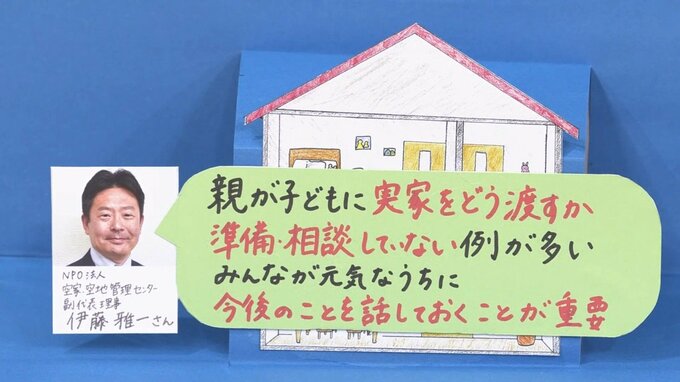 親が子どもに実家をどう渡すか
準備・相談していない例が多い
みんなが元気なうちに
今後のことを話しておくことが重要
NPO法人
空家・空地管理センター
副代表理事
伊藤雅一さん